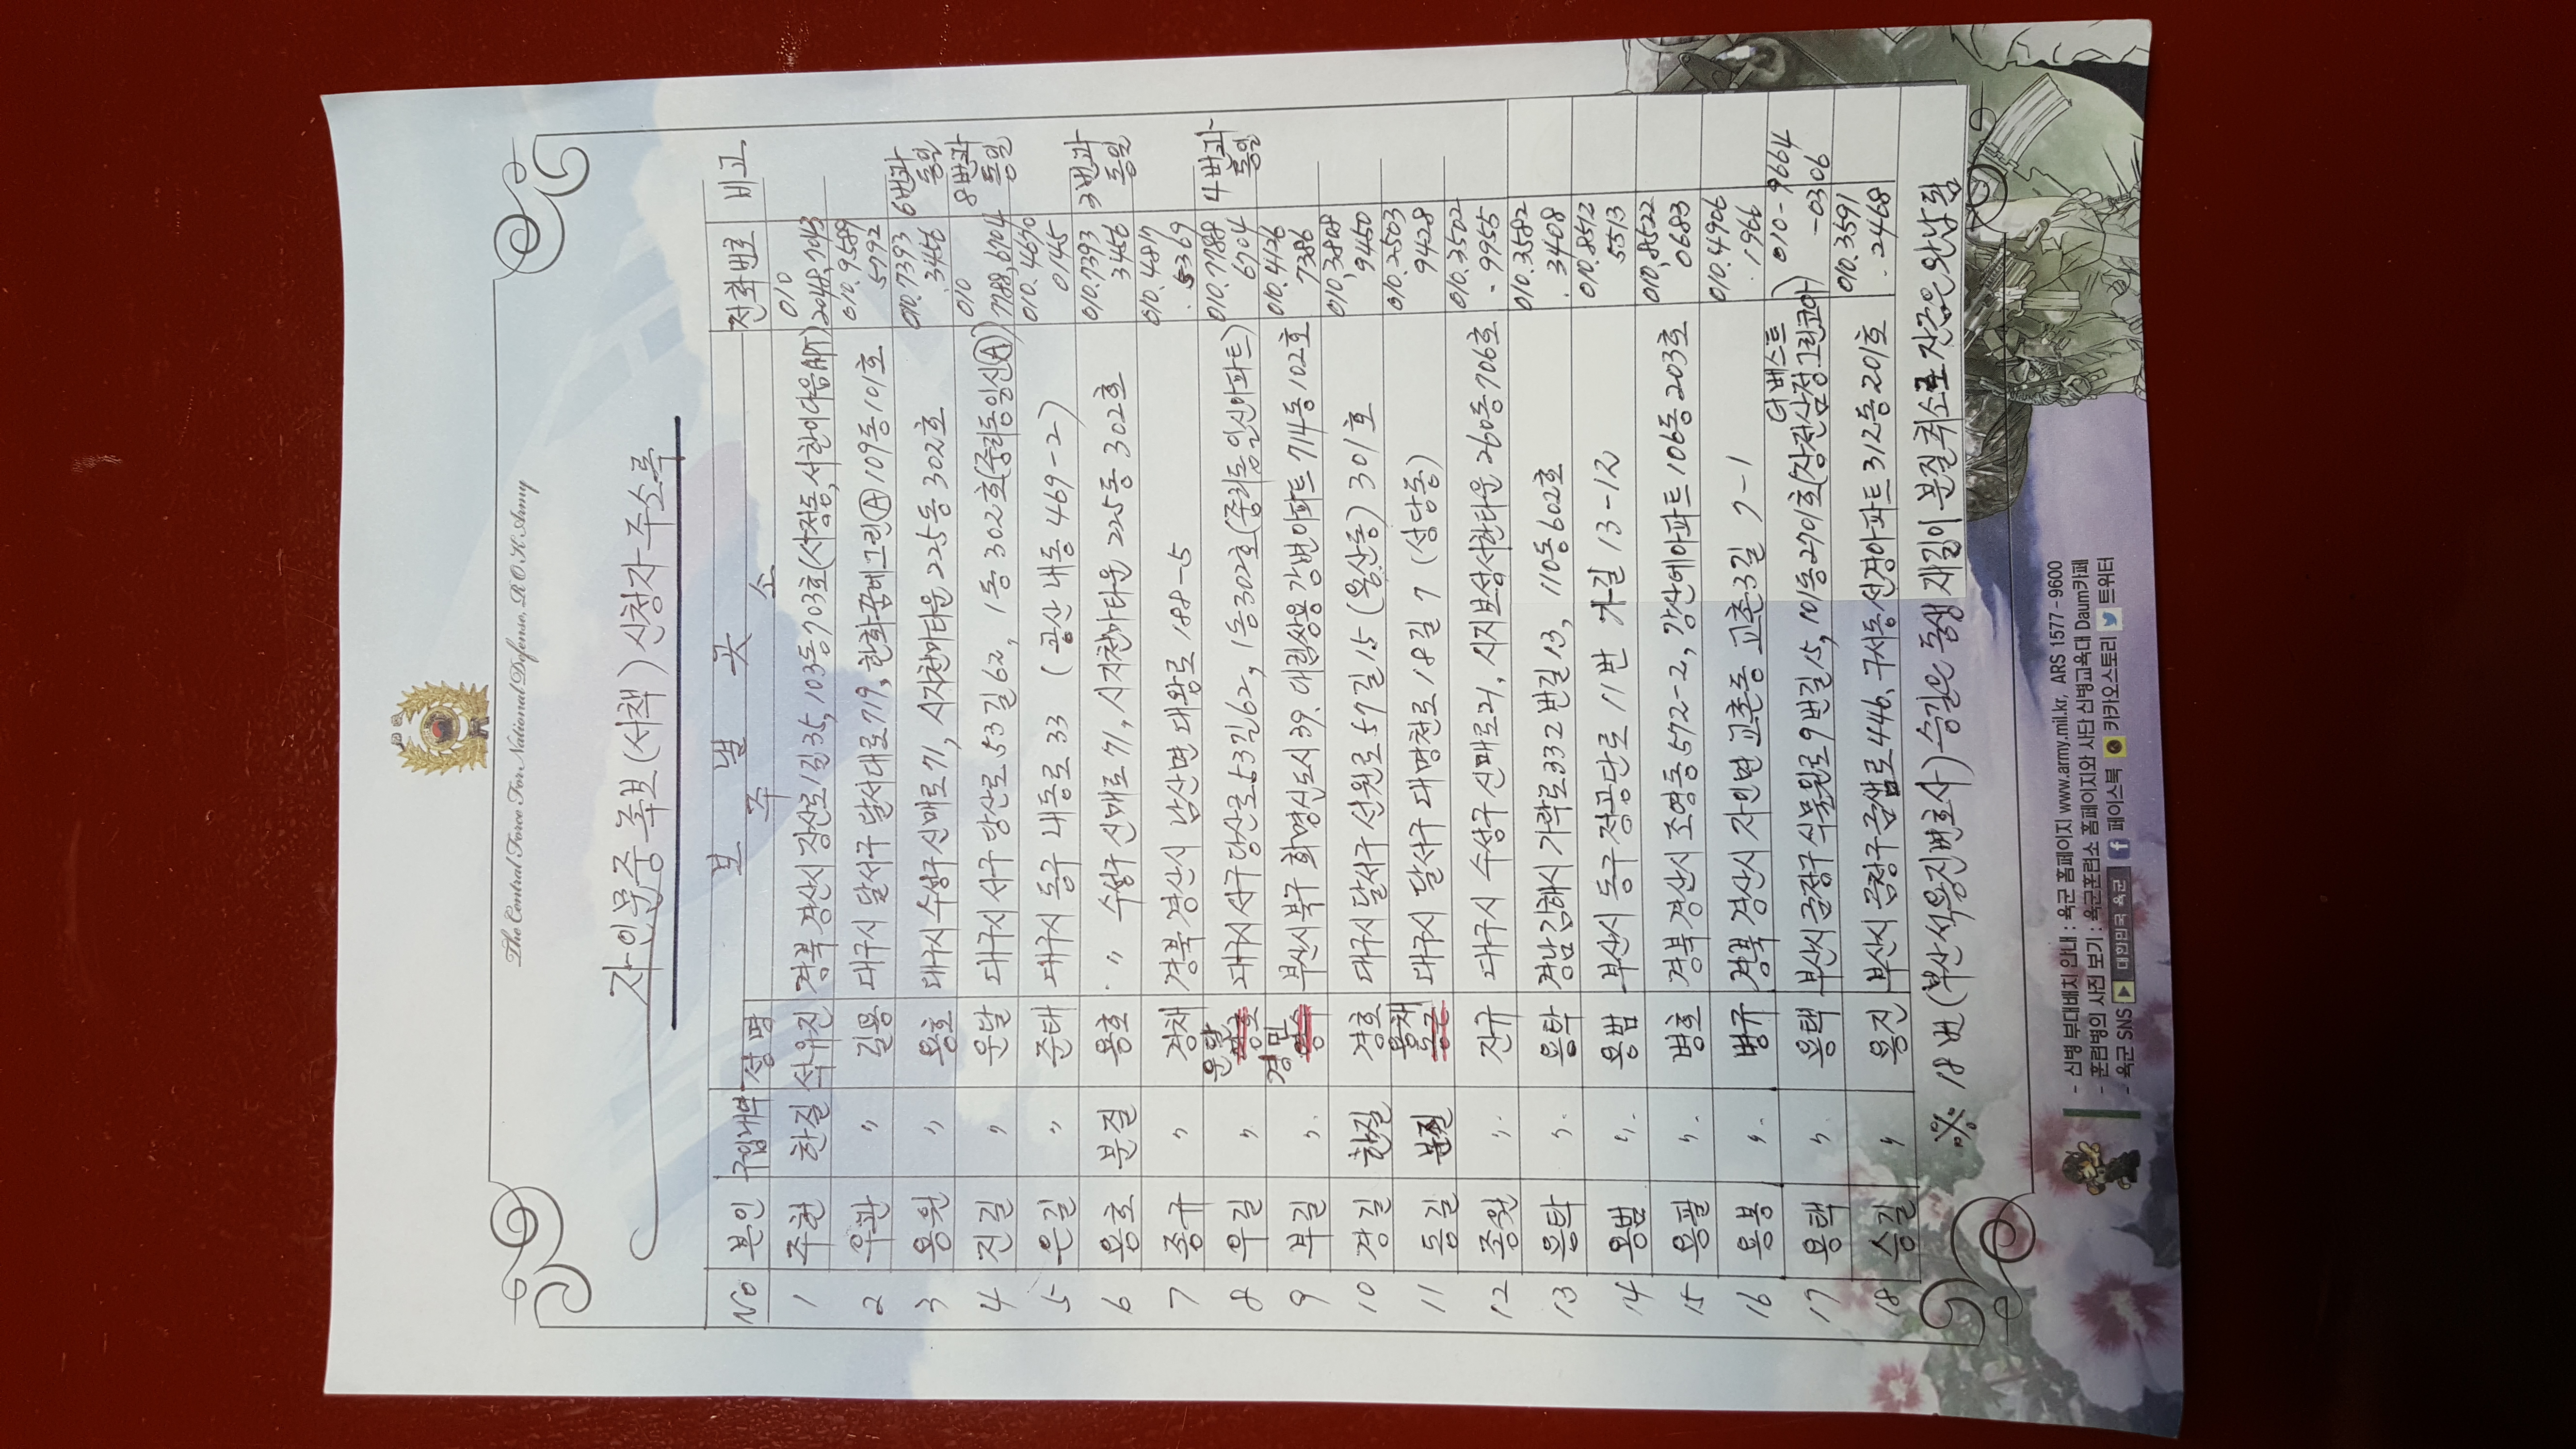 The Central Force For National Defense, R.O.K Army
자인문중 족보(서책) 신청자 주소록
No 본인 구입내역 보낼곳 전화번호 비고
성명 주소
1 주현 한질 석유진 경북 경산시 장산로1길35, 103동703호(서정동,서한이다음APT) 010 2048,7043
2 우관 〃 길용 대구시 달서구 달서대로719, 한화꿈에그린Ⓐ109동101호 010.9589 5792
3 용원 〃 용호 대구시 수성구 신매로71, 시지천마타운 225동 302호 010.7393 .3456 6번과 동일
4 진길 〃 운달 대구시 서구 당산로53길62, 1동 302호(중리동일신Ⓐ) 010 7788,6704 8번과 동일
5 은길 〃 준태 대구시 동구 내동로 33 (공산 내동 469-2) 010.4670 0145
6 용호 분질 용호 〃 수성구 신매로71, 시지천마타운 225동 302호 010.7393 3456 3번과 동일
7 종규 〃 경채 경북 경산시 남산면 대왕로 188-5 010.4817 .5369
8 우길 〃 운달 대구시 서구 당산로53길62, 1동302호(중리동일신아파트) 010.7788 6704 4번과 동일
9 부길 〃 경민 부산시 북구 화명신도시39, 대림쌍용강변아파트 714동102호 010.4126 7386
10 경길 한질 경호 대구시 달서구 선원로57길15 (용산동) 301호 010,3808 9450
11 동길 분질 용채 대구시 달서구 대명천로18길 7 (상당동) 010.2503 9428
12 종원 〃 진규 대구시 수성구 신매로21, 시지보성서한타운 260동706호 010.3502 -9955
13 용탁 〃 용탁 경남 김해시 가락로332번길13, 110동602호 010.3582 .3408
14 용범 〃 용범 부산시 동구 정공단로 11번 가길 13-12 010.8572 5513
15 용필 〃 병호 경북 경산시 조영동572-2, 강산에아파트106동203호 010,8522 0683
16 용봉 〃 병규 경북 경산시 자인면 교촌동 교촌3길 7-1 010.4906 .1966
17 용택 〃 용택 부산시 금정구 식물원로9번길15, 101동2701호(장전삼정그린코아) 더베스트 010-9664 -0306
18 승길 〃 용진 부산시 금정구 금샘로446, 구서동선경아파트312동201호 010.3591 .2468
※. 18번(부산석용진변호사) 승길은 동생 재길이 분질취소로 잔금은 완납됨
- 신병 부대배치 안내 : 육군 홈페이지 www.army.mil.kr, ARS 1577-9600
- 훈련병의 사진 보기 : 육군훈련소 홈페이지와 사단 신병교육대 Daum카페
- 육군 SNS 대한민국 육군 페이스북 카카오스토리 트위터